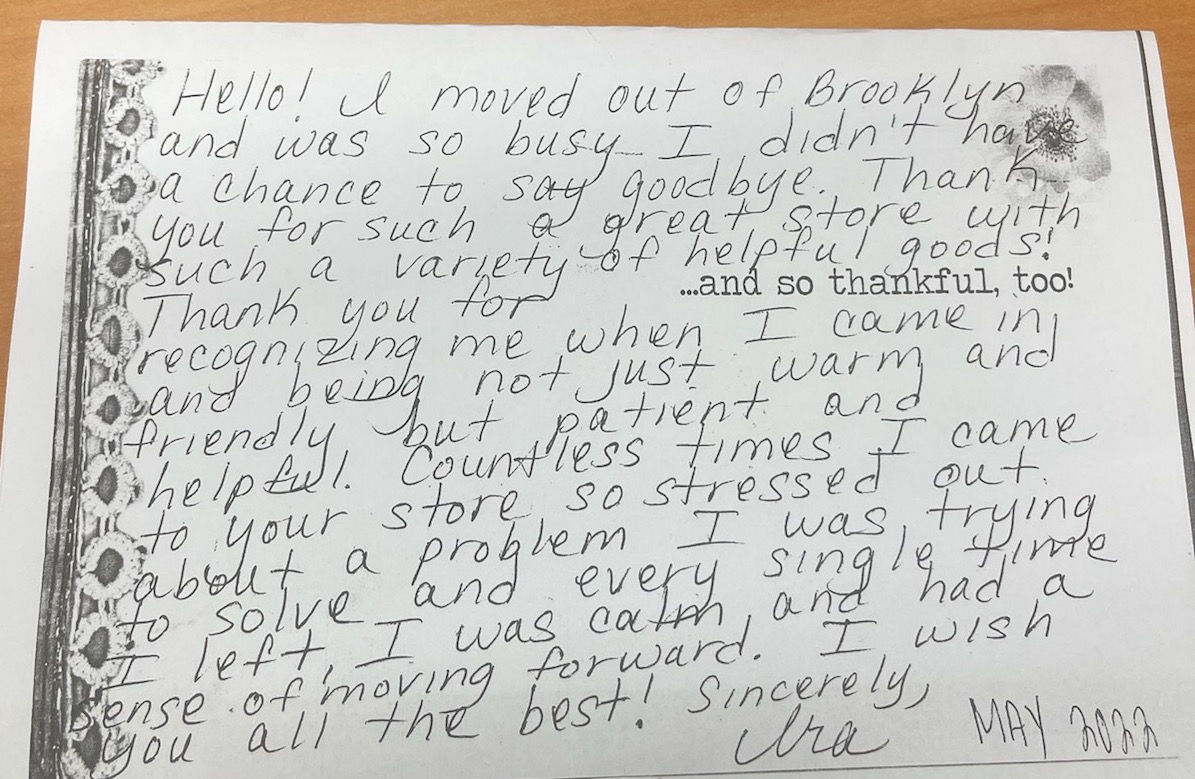 Hello! I moved out of Brooklyn
and was so busy I didn't have
a chance to say goodbye. Thank
you for such a great store with
such a variety of helpful goods!
...and so thankful, too!
Thank you for
recognizing me when I came in,
and being not just warm and
friendly but patient and
helpful. Countless times I came
to your store so stressed out
about a problem I was trying
to solve and every single time
I left, I was calm, and had a
sense of moving forward. I wish
you all the best! Sincerely,
Ira
MAY 2022